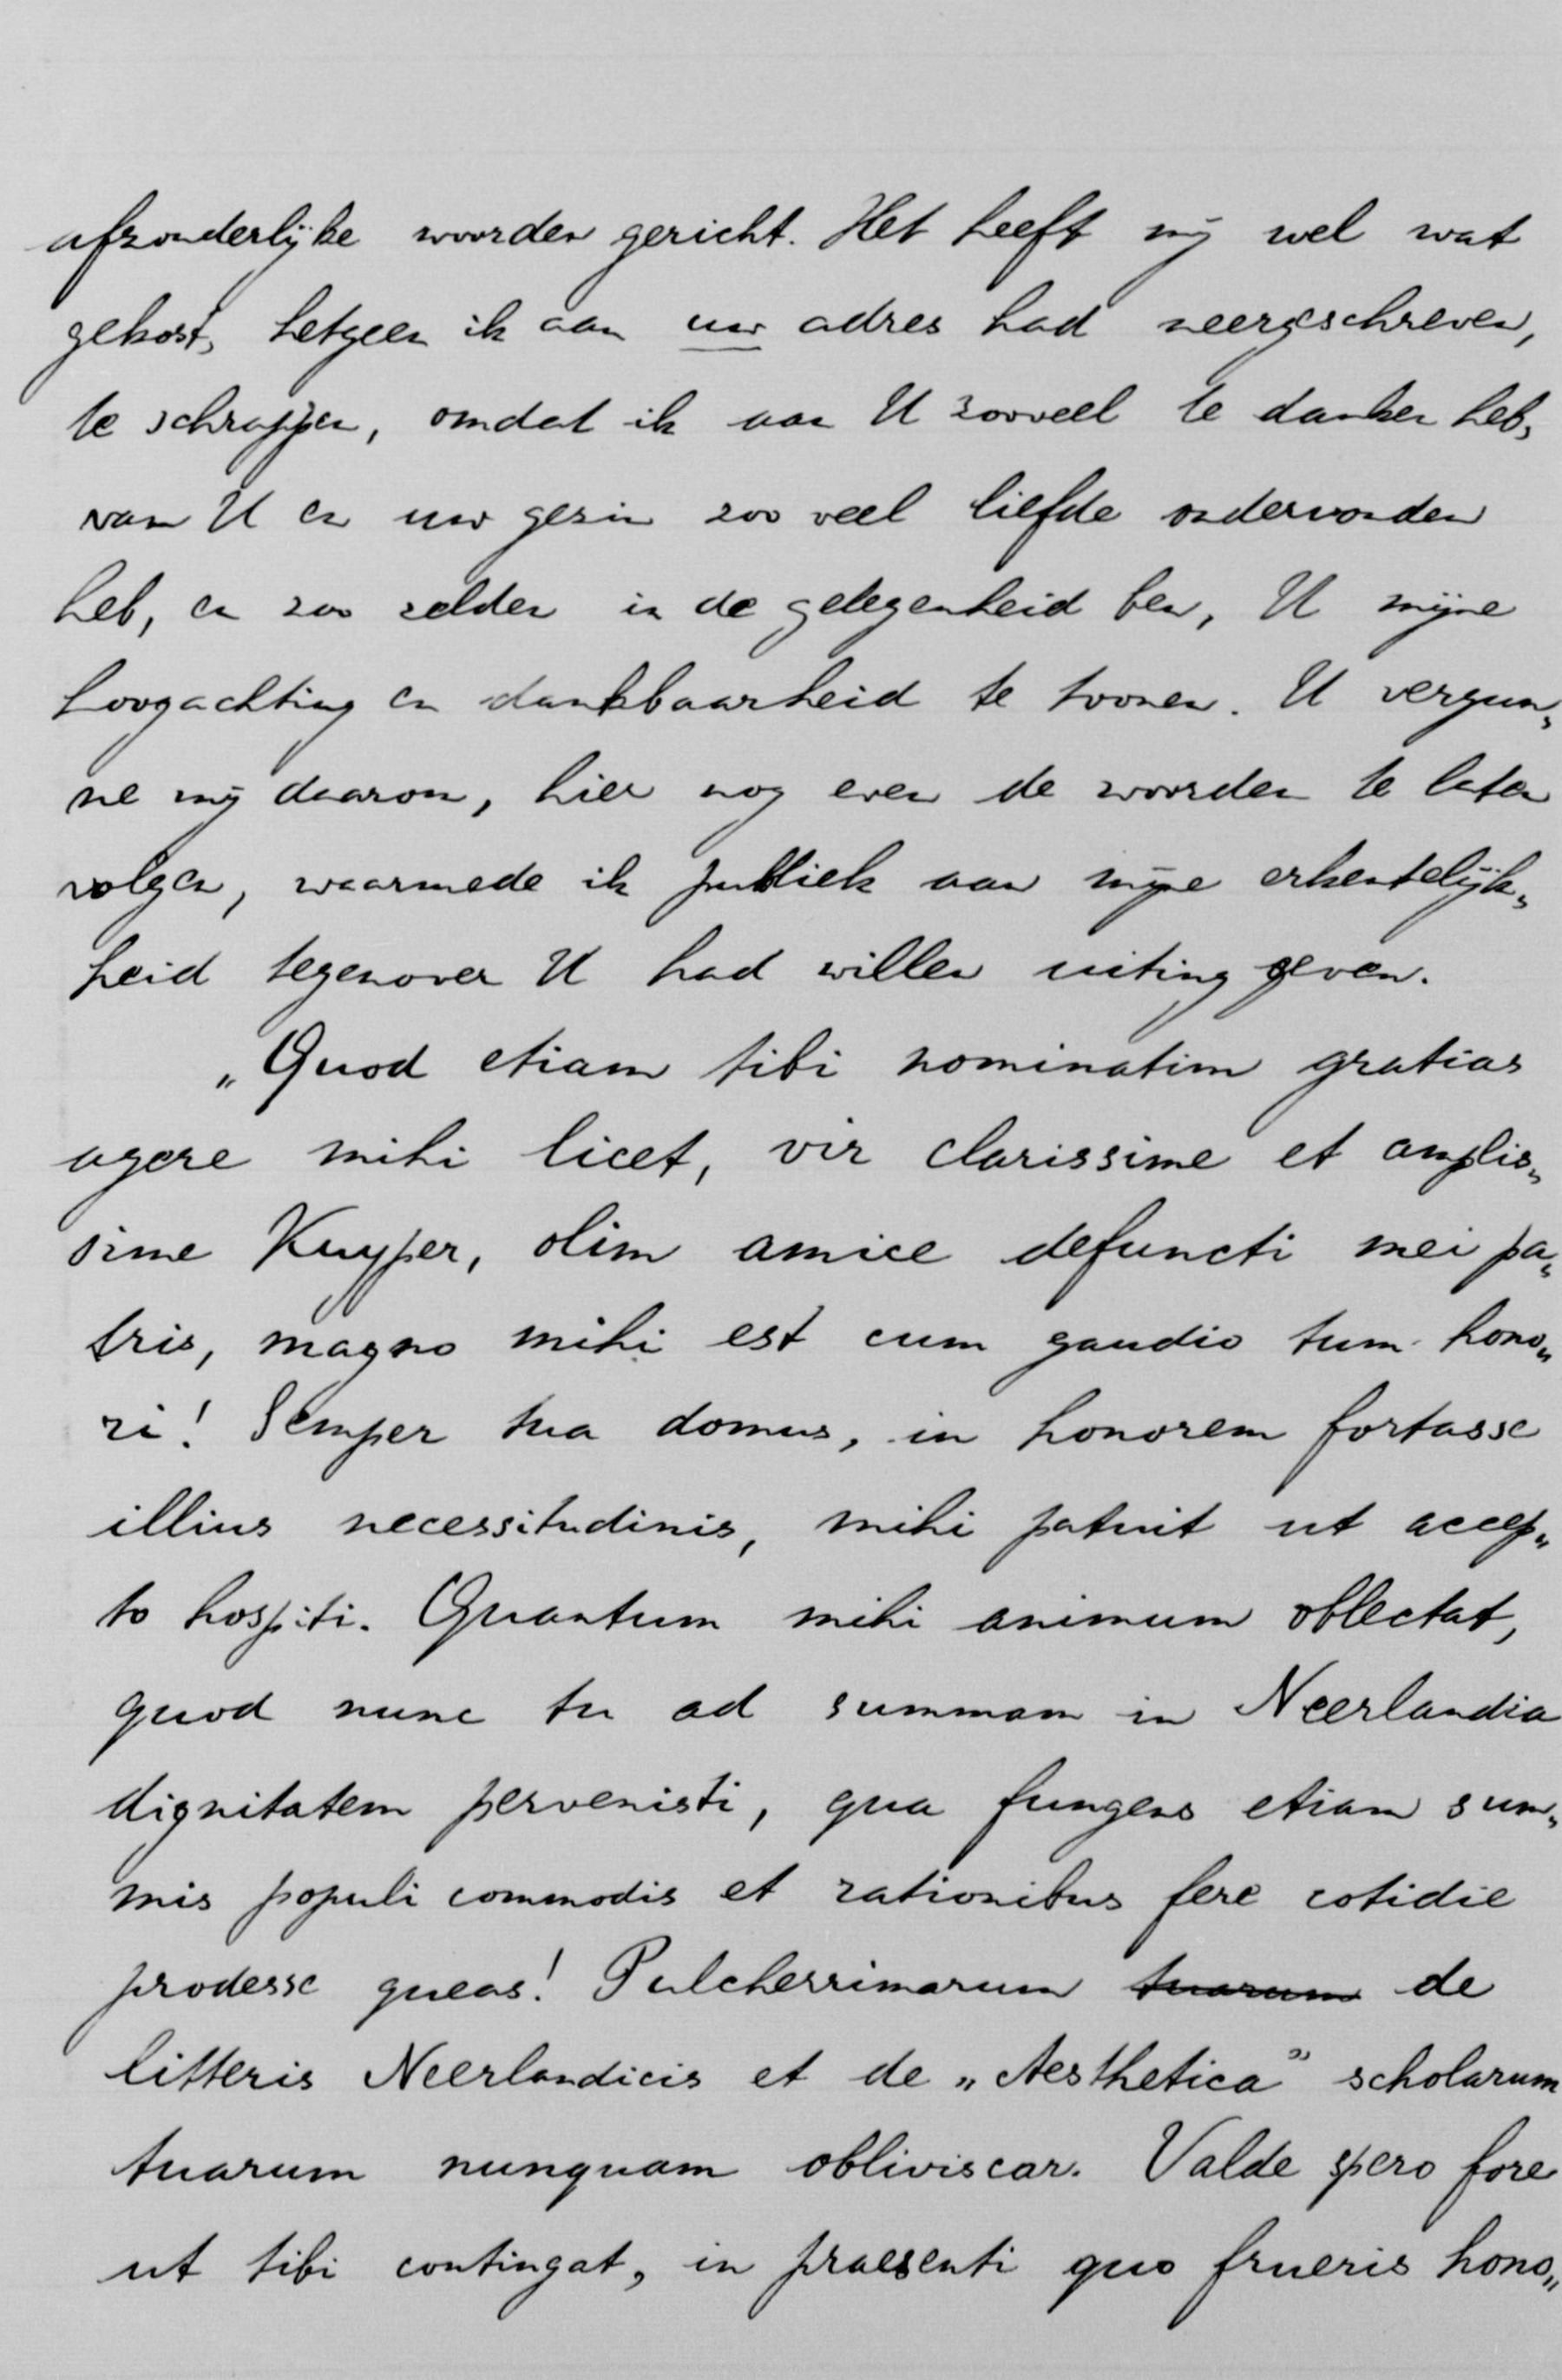 afzonderlijke woorden gericht. Het heeft mij wel wat
gekost, hetgeen ik aan uw adres had neergeschreven,
te schrappen, omdat ik aan U zooveel te danken heb,
van U en uw gezin zoo veel liefde ondervonden
heb, en zoo zelden in de gelegenheid ben, U mijne
hoogachting en dankbaarheid te toonen. U vergun„
ne mij daarom, hier nog even de woorden te laten
volgen, waarmede ik publiek aan mijne erkentelijk„
heid tegenover U had willen uiting geven.
„Quod etiam tibi nominatim gratias
agere mihi licet, vir clarissime et amplis„
sime Kuyper, olim amice defuncti mei pa„
tris, magno mihi est cum gaudio tum hono„
ri! Semper tua domus, in honorem fortasse
illius necessitudinis, mihi patuit ut accep„
to hospiti. Quantum mihi animum oblectat,
quod nunc tu ad summam in Neerlandia
dignitatem pervenisti, qua fungens etiam sum„
mis populi commodis et rationibus fere cotidie
prodesse queas! Pulcherrimarum tuarum de
litteris Neerlandicis et de „Aesthetica” scholarum
tuarum nunquam obliviscar. Valde spero fore
ut tibi contingat, in praesenti quo frueris hono„